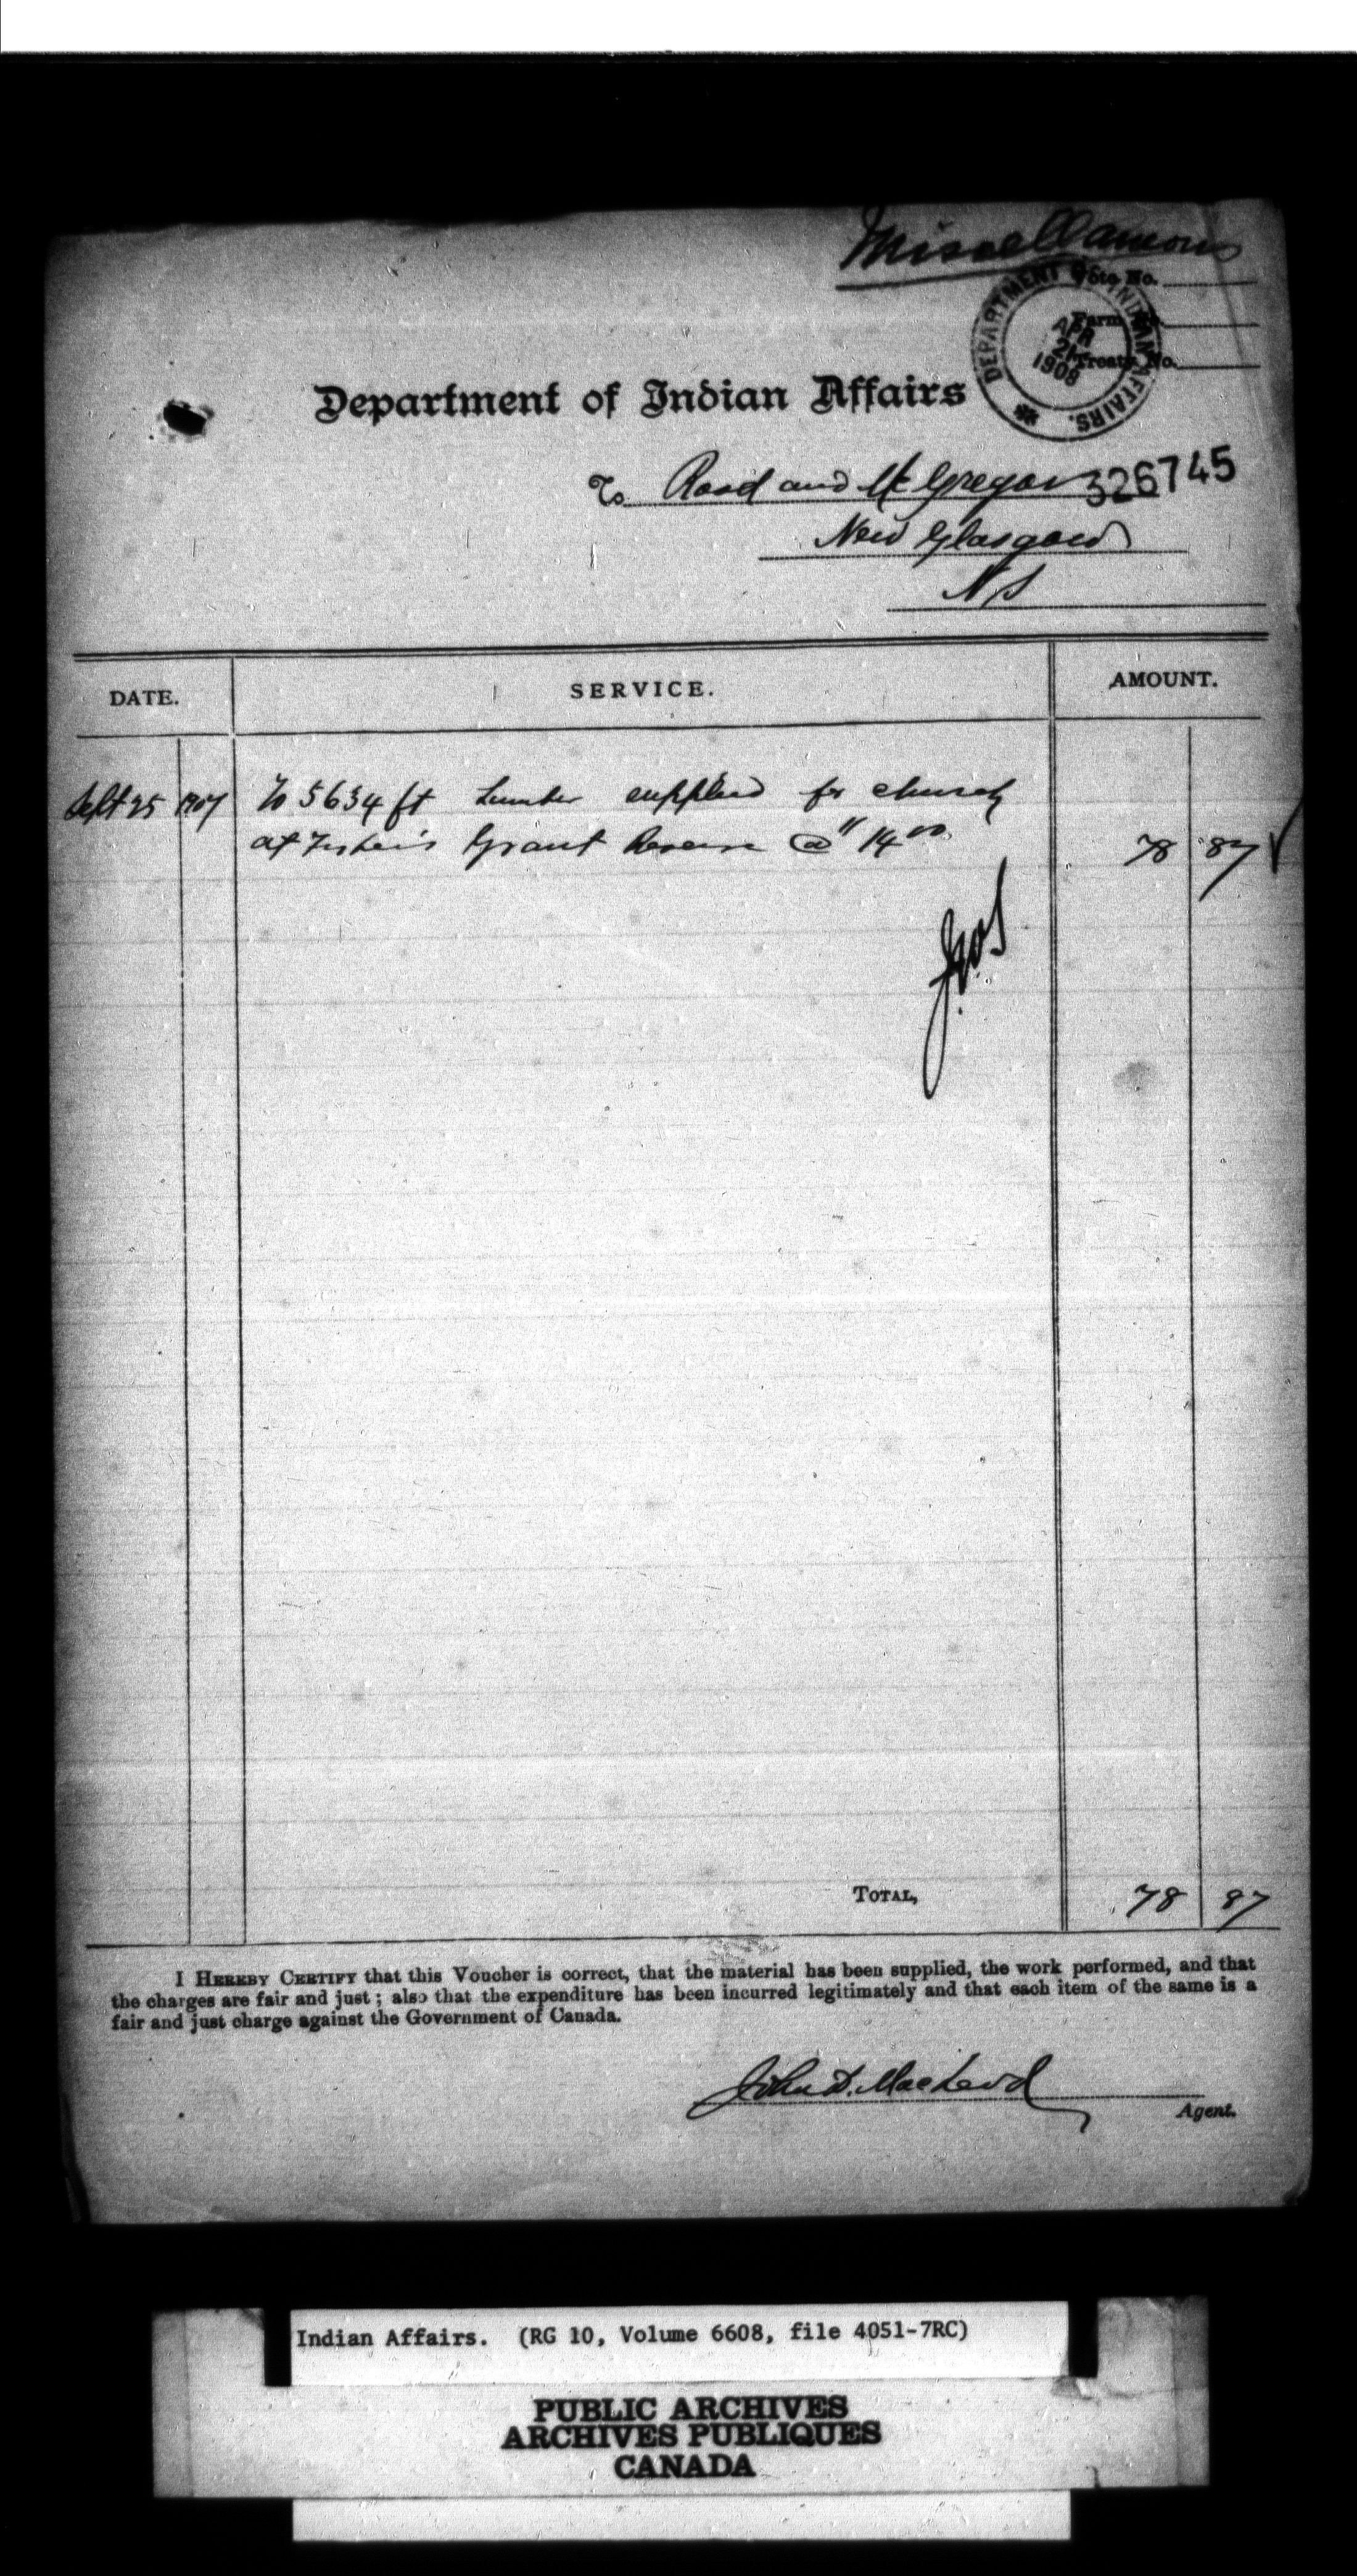 Miscellaneous
Vote No.
Farm No.
Treaty No.
DEPARTMENT OF INDIAN AFFAIRS.
APR
21
1908
Department of Indian Affairs
To Rood and McGregor 326745
New Glasgow
N S
DATE. SERVICE. AMOUNT.
Sept 25 1907 To 5634 ft Lumber supplied for church
at Fisher's Grant Reserve @ " 14 00 78 87
TOTAL, 78 87
I HEREBY CERTIFY that this Voucher is correct, that the material has been supplied, the work performed, and that
the charges are fair and just; also that the expenditure has been incurred legitimately and that each item of the same is a
fair and just charge against the Government of Canada.
John D. MacLeod
Agent.
Indian Affairs. (RG 10, Volume 6608, file 4051-7RC)
PUBLIC ARCHIVES
ARCHIVES PUBLIQUES
CANADA